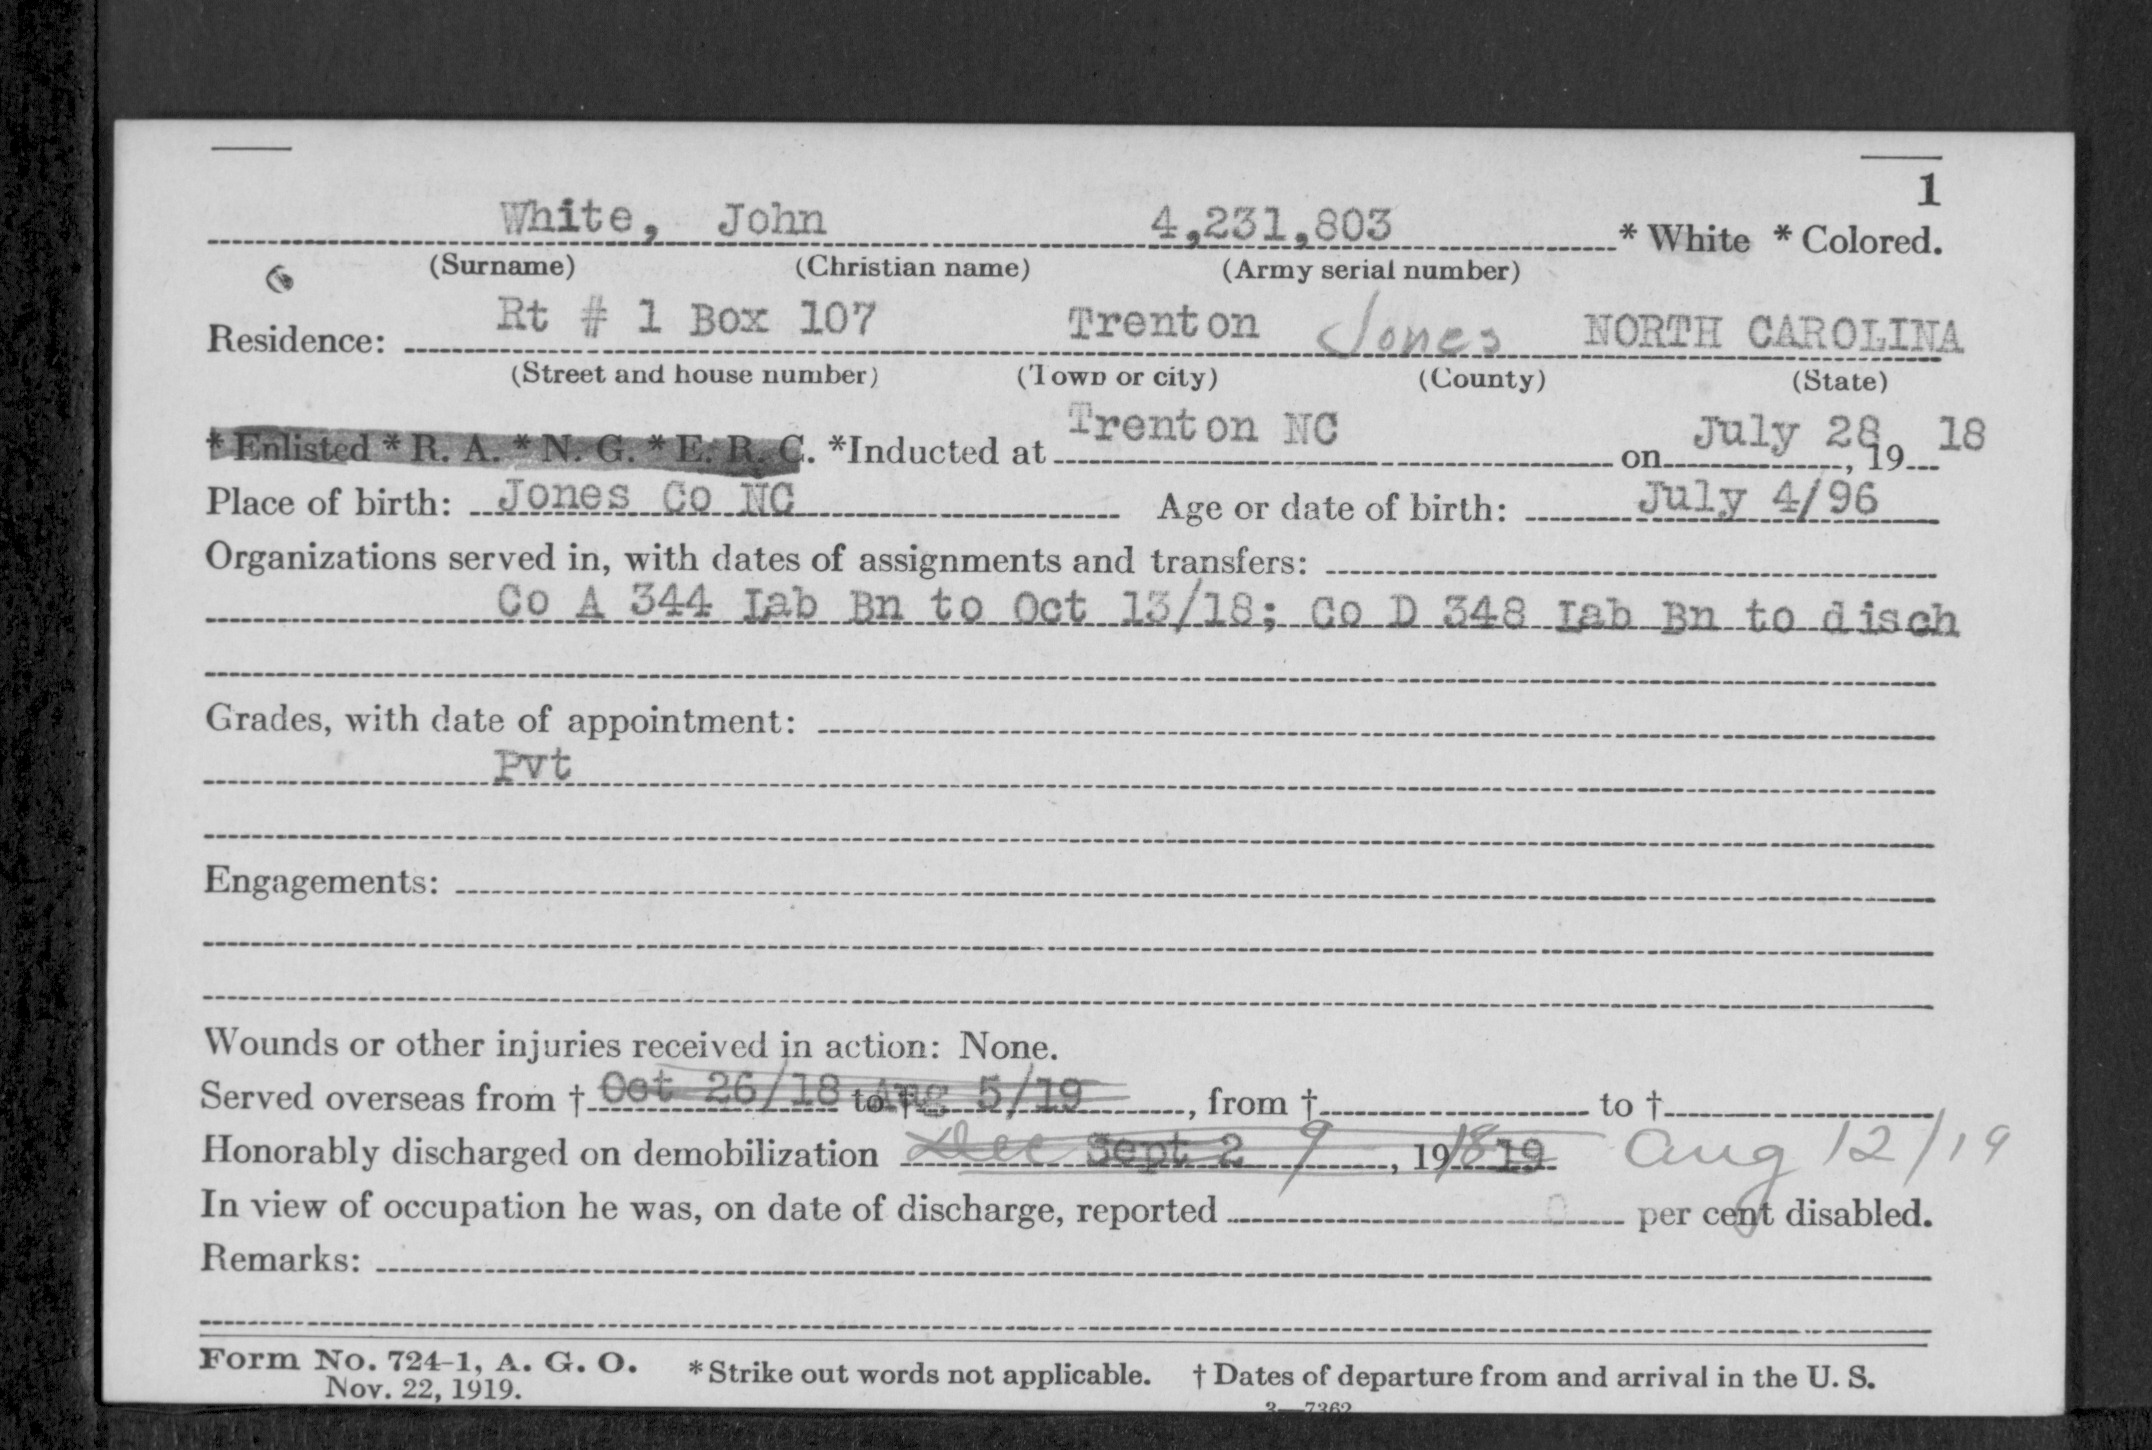 1
White, John 4,231,803 * White * Colored.
(Surname) (Christian name) (Army serial number)
Residence: Rt # 1 Box 107 Trenton Jones NORTH CAROLINA
(Street and house number) (Town or city) (County) (State)
* Enlisted * R. A. * N. G. * E. R. C. *Inducted at Trenton NC on July 28, 1918
Place of birth: Jones Co NC Age or date of birth: July 4/96
Organizations served in, with dates of assignments and transfers:
Co A 344 Lab Bn to Oct 13/18; Co D 348 Lab Bn to disch
Grades, with date of appointment:
Pvt
Engagements:
Wounds or other injuries received in action: None.
Served overseas from † Oct 26/18 to † Aug 5/19, from † to †
Honorably discharged on demobilization Dec Sept 2 9, 19 18 19 Aug 12/19
In view of occupation he was, on date of discharge, reported 0 per cent disabled.
Remarks:
Form No. 724-1, A. G. O. * Strike out words not applicable. † Dates of departure from and arrival in the U. S.
Nov. 22, 1919.
3—7362